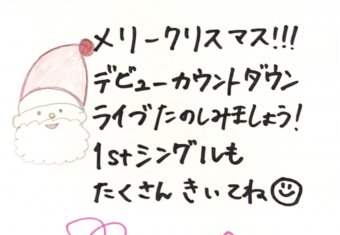 メリークリスマス!!!
デビューカウントダウン
ライブたのしみましょう!
1stシングルも
たくさんきいてね☺